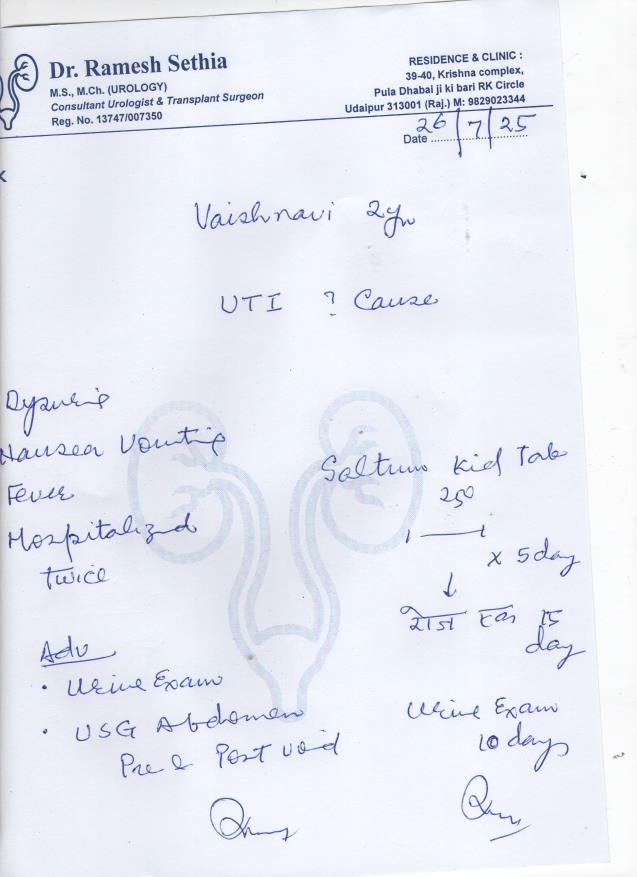 Dr. Ramesh Sethia
M.S., M.Ch. (UROLOGY)
Consultant Urologist & Transplant Surgeon
Reg. No. 13747/007350
RESIDENCE & CLINIC :
39-40, Krishna complex,
Pula Dhabai ji ki bari RK Circle
Udaipur 313001 (Raj.) M: 9829023344
Date 26/7/25
Vaishnavi 2yr
UTI ? Cause
Dysuria
Nausea Vomiting
Fever
Hospitalized
twice
Adv
• Urine Exam
• USG Abdomen
Pre & Post void
Kid Tab
250
1 — 1
x 5 day
↓
रोज एक 15
day
Urine Exam
10 days